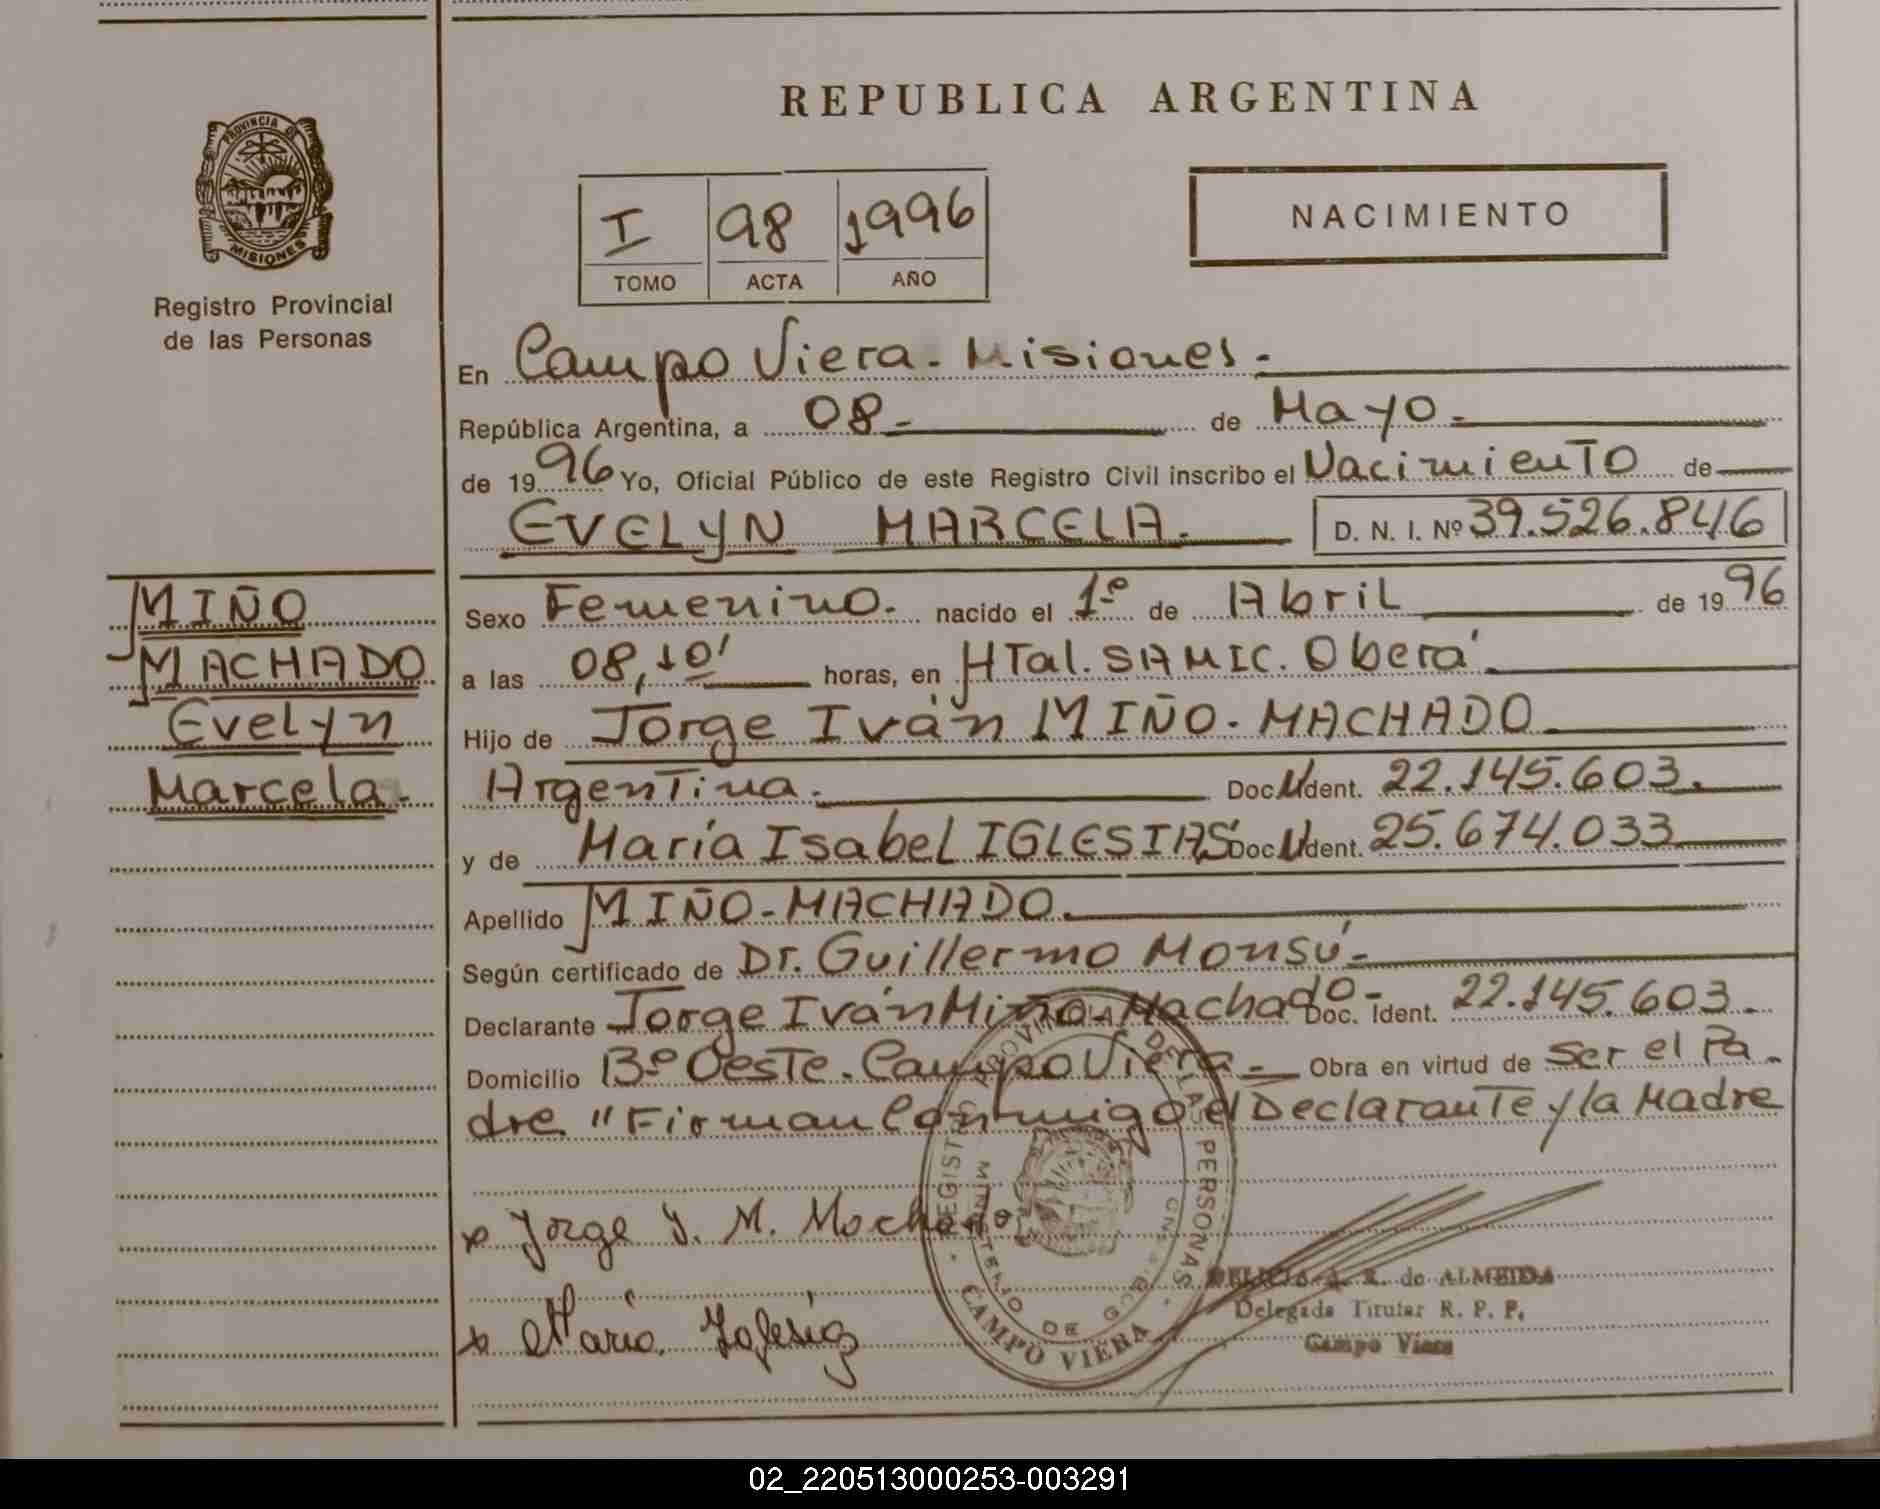 REPUBLICA ARGENTINA
PROVINCIA DE
MISIONES
Registro Provincial
de las Personas
I 98 1996
TOMO ACTA AÑO
NACIMIENTO
En Campo Viera - Misiones -
República Argentina, a 08 - de Mayo -
de 1996 Yo, Oficial Público de este Registro Civil inscribo el Nacimiento de
EVELYN MARCELA. D. N. I. Nº 39.526.846
MIÑO
MACHADO
Evelyn
Marcela -
Sexo Femenino. nacido el 1º de Abril de 1996
a las 08,10' horas, en HTal. SAMIC. Oberá -
Hijo de Jorge Iván MIÑO - MACHADO
Argentina. Doc. Ident. 22.145.603.
y de María Isabel IGLESIAS Doc. Ident. 25.674.033
Apellido MIÑO - MACHADO.
Según certificado de Dr. Guillermo Monsú -
Declarante Jorge Iván Miño - Machado - Doc. Ident. 22.145.603.
Domicilio Bº Oeste - Campo Viera - Obra en virtud de ser el Pa -
dre " Firman Conmigo el Declarante y la Madre
x Jorge I. M. Machado
x María Iglesias
REGISTRO PROVINCIAL DE LAS PERSONAS
MINISTERIO DE GOB
CAMPO VIERA
A. R. de ALMEIDA
Delegada Titular R. P. P.
Campo Viera
02_220513000253-003291